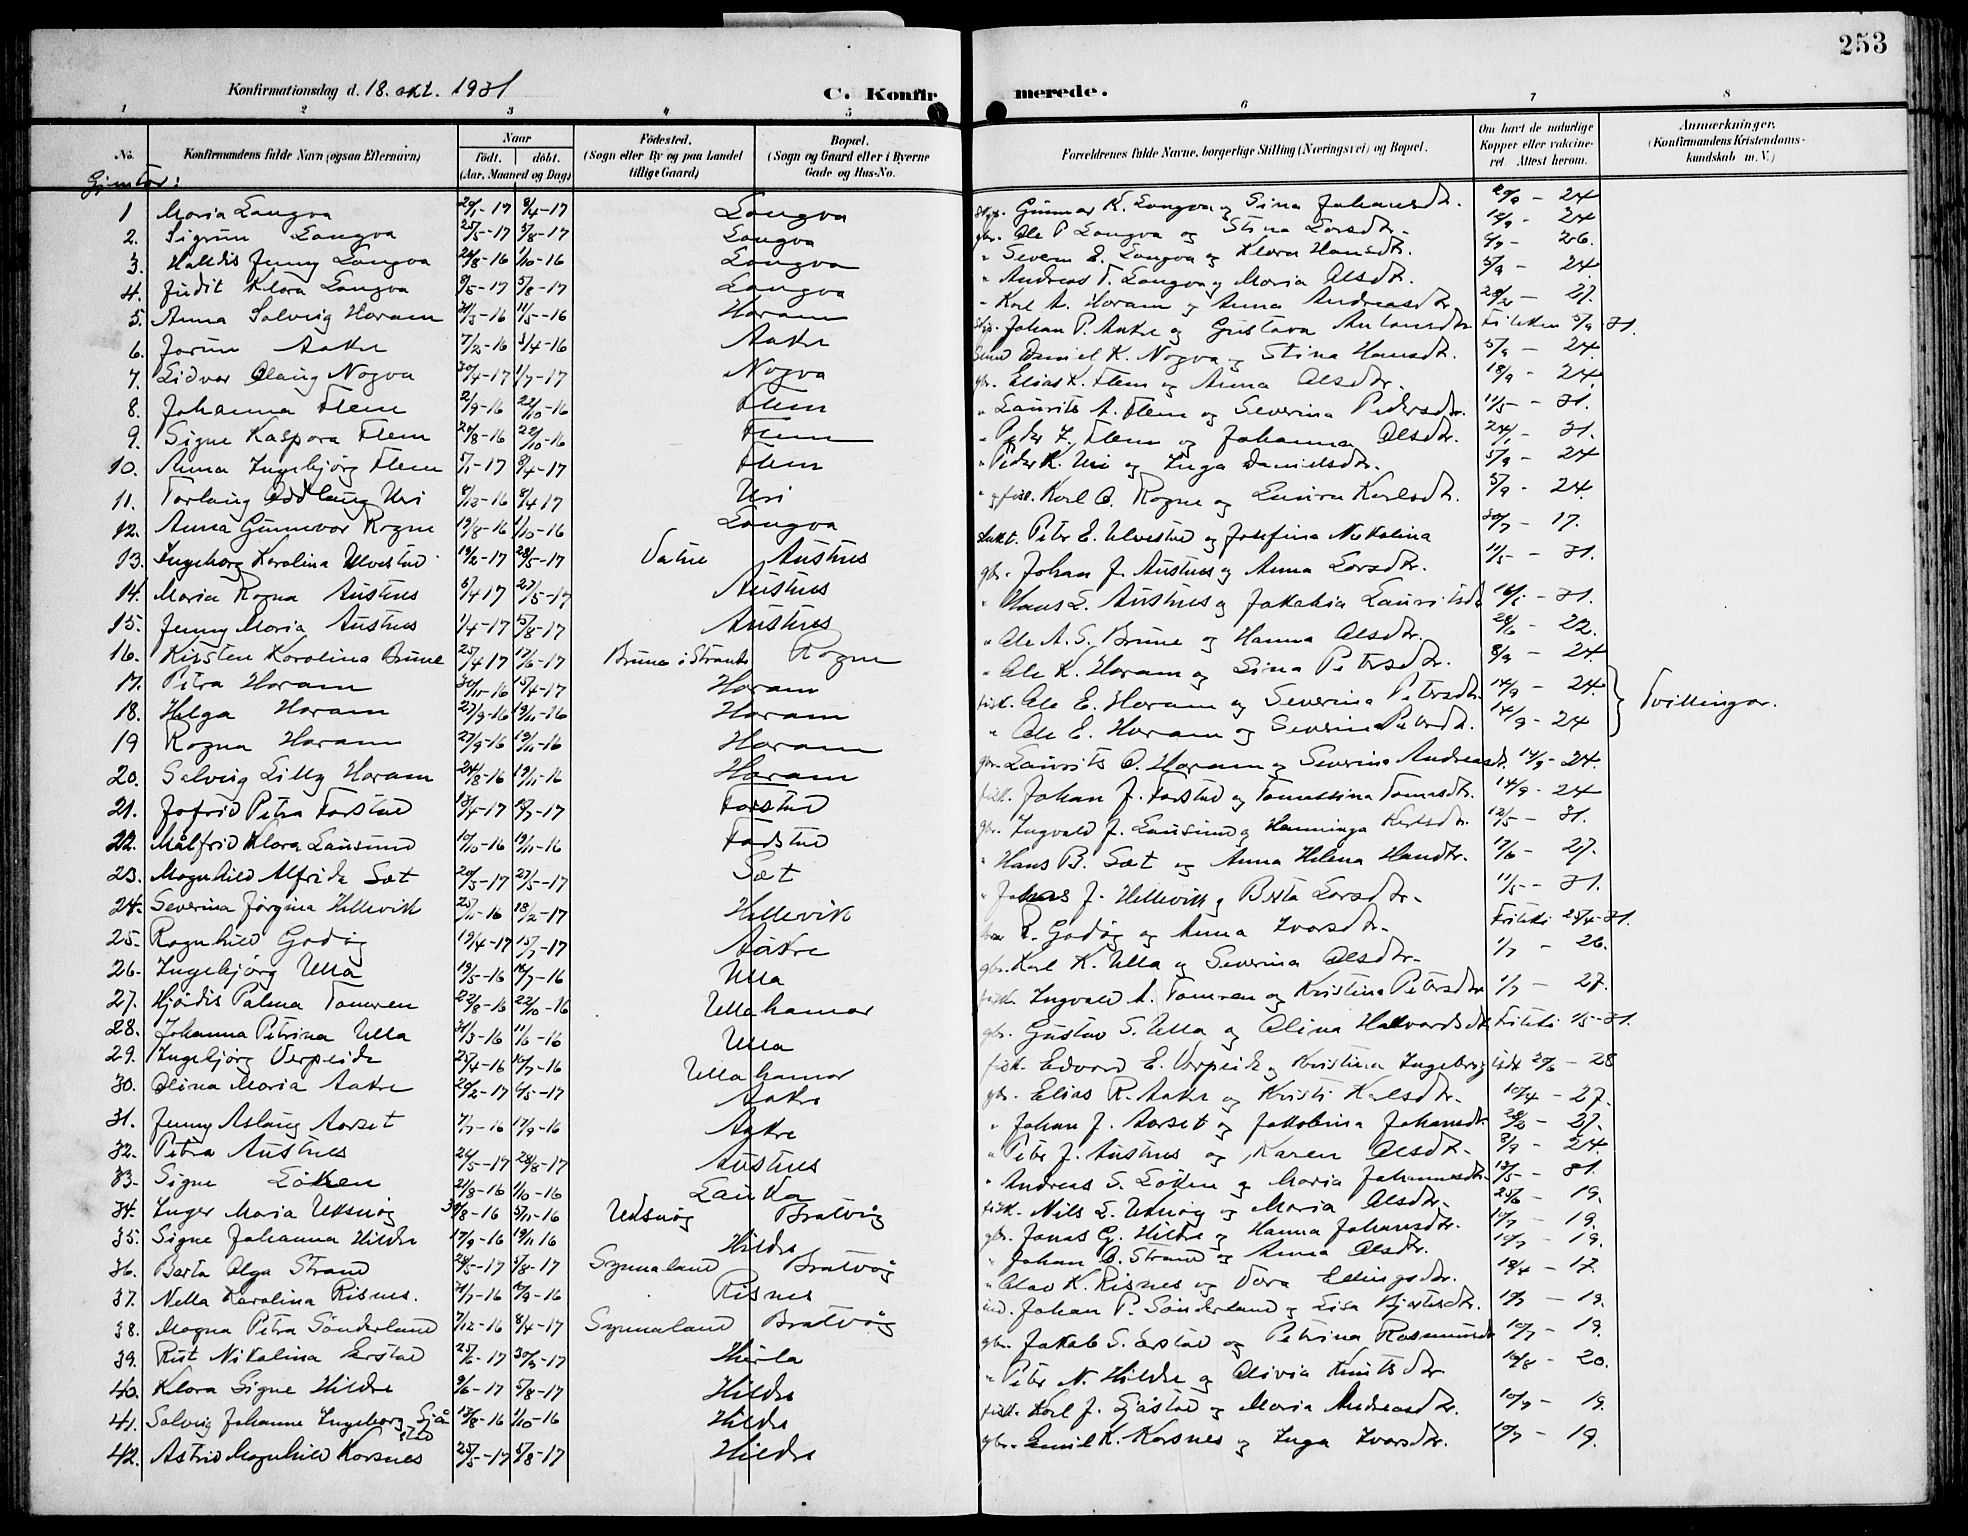 253
Konfirmationsdag d. 18. okt. 1931
C. Konfir
merede.
1 2 3 4 5 6 7 8
No.
Konfirmandens fulde Navn (ogsaa Efternavn)
Naar
födt. döbt.
(Aar, Maaned og Dag)
Födested.
(Sogn eller By og paa Landet
tillige Gaard)
Bopæl.
(Sogn og Gaard eller i Byerne
Gade og Hus-No.
Forældrenes fulde Navne, borgerlige Stilling (Næringsvei) og Bopæl.
Om havt de naturlige
Kopper eller vaccine-
ret. Attest herom.
Anmærkninger.
(Konfirmandens Kristendoms-
kundskab m. V.)
Gjentor:
1 Maria Longva 8/4-17 Longva Gunnar K. Longva og Sina Johansdtr. - 24
2. Sigrun Longva 25/5-17 5/8-17 Longva gbr. Ole P Longva og Stina Larsdtr. - 24
3. Halldis Jenny Longva 26/8-16 1/10-16 Longva " Severin E. Longva og Klara Hansdtr. - 26.
4. Judit Klara Longva 9/5-17 5/8-17 Longva " Andreas T. Longva og Maria Olsdtr. 5/9 - 24
5. Anna Solveig Haram 31/3-16 11/5-16 Haram " Karl A. Haram og Anna Andreasdtr. - 27.
6. Jorun Aakre 7/2-16 3/4-16 Aakre Johan P. Aakre og Gustava Antonsdtr. 5/9 31.
7. Lidvar Olaug Nogva 30/4-17 1/7-17 Nogva Daniel K. Nogva og Stina Hansdtr. 5/9 - 24
8. Johanna Flem 2/9-16 22/10-16 Flem gbr. Elias K. Flem og Anna Olsdtr. 18/9 - 24.
9. Signe Kaspara Flem 20/8-16 22/10-16 Flem " Laurits A. Flem og Severina Pedersdtr. 11/5 - 31.
10. Anna Ingebjörg Flem 5/1-17 9/4-17 Flem " Peder Flem og Johanna Olsdtr. 24/1 - 31.
11. Torlaug Oddlaug Uri 8/12-16 8/4 17 Uri " Peder K. Uri og Inga Danielsdtr. 5/9 - 24
12. Anna Gunnevor Rogne 19/8-16 1/10-16 Longva Karl O. Rogne og Karlsdtr. 5/9 - 24.
13. Ingeborg Karolina Ulvestad 19/2-17 28/5-17 Vatne Austnes Peter E. Ulvestad og Josefina Nikolina 30/7 - 17.
14. Maria Ragna Austnes 6/4 17 27/5-17 Austnes gbr. Johan J. Austnes og Anna Larsdtr. 11/5 - 31.
15. Jenny Maria Austnes 1/4-17 15/8-17 Austnes " Hans L. Austnes og Jakobia Lauritsdtr - 31.
16. Kirsten Karolina Brune 25/4 17 17/6-17 Brune i Stranda Rogne " Ole A. S. Brune og Hanna Olsdtr. 28/6 - 22.
17. Petra Haram 30/11-16 15/4-17 Haram " Ole K. Haram og Lina Petersdtr. 8/9 - 24.
18. Helga Haram 27/9-16 19/11-16 Haram fisk. Ole E. Haram og Severina Petersdtr. 14/9 - 24. Tvillingar.
19 Ragna Haram 27/9-16 19/11-16 Haram " Ole E. Haram og Severina Petersdtr. 14/9 - 24
20. Solveig Lilly Haram 24/8-16 19/11-16 Haram gbr. Laurits O. Haram og Severina Andreasdtr. 14/9 - 24.
21. Jofrid Petra Farstad 13/4-17 Farstad fisk. Johan J. Farstad og Tomassina Tomasdtr. 14/9 - 24
22. Målfrid Klara Lausund 10/10-16 19/11-16 Farstad gbr. Ingvald J. Lausund og Hanninga Karlsdtr. 12/5 - 31.
23. Magnhild Alfrida Sæt 20/3-17 27/5-17 Sæt " Hans B. Sæt og Anna Helena Hansdtr. 17/6 - 27.
24. Severina Jørgina Hellevik 25/11-16 18/2-17 Hellevik " Johas J. Hellevik og Berta Larsdtr. 11/5 - 31.
25. Ragnhild Godöy 19/4-17 15/7-17 Aakre R. Godöy og Anna Ivarsdtr. 25/4-31.
26. Ingebjørg Ulla 19/5-16 16/7-16 Ulla gbr. Karl K. Ulla og Severina Olsdtr. 1/7 - 26.
27. Hjördis Palma Tomren 22/8-16 22/10-16 Ullahamar fisk. Ingvald A. Tomren og Kristina Petersdtr 1/7 - 27.
28. Johanna Petrina Ulla 31/3-16 11/6-16 Ulla gbr. Gustav S. Ulla og Olina Hallvardsdtr 1/5-31.
29. Ingebjörg Verpeide 25/4-16 16/7-16 Ullahamar fisk. Edvard E. Verpeide og Kristina Ingebrigtsdtr 29/6 - 28
30. Olina Maria Aakre 20/2-17 6/5-17 Aakre gbr. Elias R. Aakre og Kristi Karlsdtr. 10/4 - 27.
31. Jenny Aslaug Aarset 7/7-16 17/9-16 Aakre " Johan J. Aarset og Jakobina Johansdtr. - 27.
32. Petra Austnes 26/5-17 28/8-17 Austnes " Peter J. Austnes og Karen Olsdtr. 8/9 - 24.
33. Signe Löken 21/8-16 1/10-16 Lauka " Andreas S. Löken og Maria Johannesdtr. 13/5 - 31.
34. Inger Maria Uksnöy 31/8-16 5/11-16 Uksnöy Bratvåg fisk. Nils L. Uksnöy og Maria Olsdtr. 25/6 - 19.
35. Signe Johanna Hildre 17/9-16 19/11 16 Hildre gbr. Jonas G. Hildre og Hanna Johansdtr. 10/7 - 19.
36. Berta Olga Strand 24/5-17 5/8-17 Synnaland Bratvåg " Johan O. Strand og Anna Olsdtr. 10/7 - 19.
37. Nella Karolina Risnes. 31/7-16 10/9-16 Risnes " Olav K. Risnes og Tora Ellingsdtr. 19/4 - 17.
38. Magna Petra Sönderland 7/12-16 8/4-17 Synnaland Bratvåg Johan P. Sönderland og Lisa 10/7 - 19.
39. Rut Nikolina Erstad 25/6-17 30/9-17 Hurla gbr. Jakob S. Erstad og Petrina Rasmusdtr 10/7 - 19.
40. Klara Signe Hildre 9/6-17 5/8-17 Hildre " Peter N. Hildre og Olivia Knutsdtr 10/8 - 20.
41. Solveig Johanne Ingeborg Sjå 13/8-16 1/10-16 Hildre fisk. Karl J. Sjåstad og Maria Andreasdtr. 10/7 - 19.
stad
42. Astrid Magnhild Korsnes 25/5-17 5/8-17 Hildre gbr. Emil K. Korsnes og Inga Ivarsdtr. 10/7 - 19.